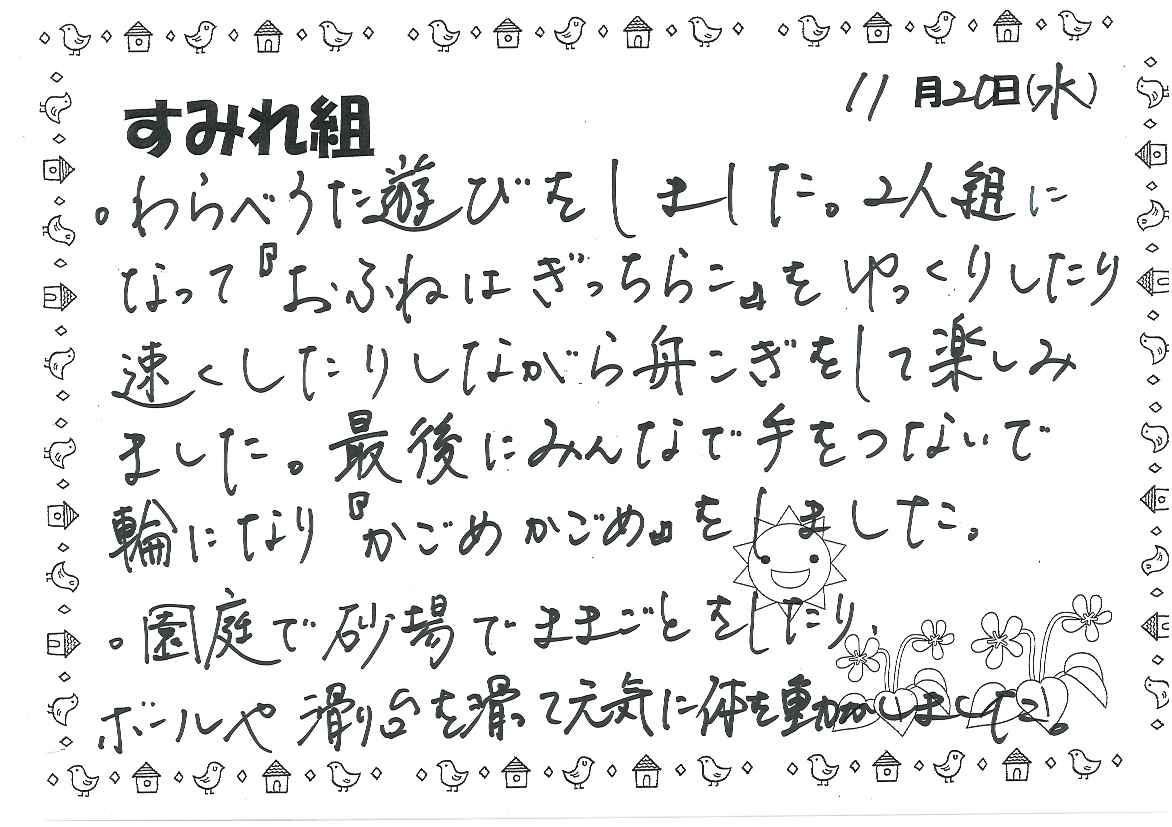 11月20日(水)
すみれ組
。わらべうた遊びをしました。2人組に
なって『おふねはぎっちらこ』をゆっくりしたり
速くしたりしながら舟こぎをして楽しみ
ました。最後にみんなで手をつないで
輪になり『かごめかごめ』をしました。
。園庭で砂場でままごとをしたり、
ボールや滑り台を滑って元気に体を動かしました。